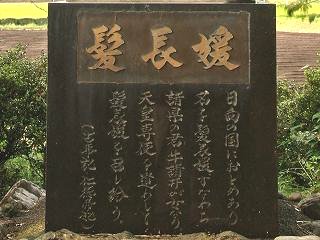 髪長媛
日向の国におとめあり
名を髪長媛すなわち
諸県の君牛諸井の女なり
天皇専使を遣わして
髪長媛を召し給う